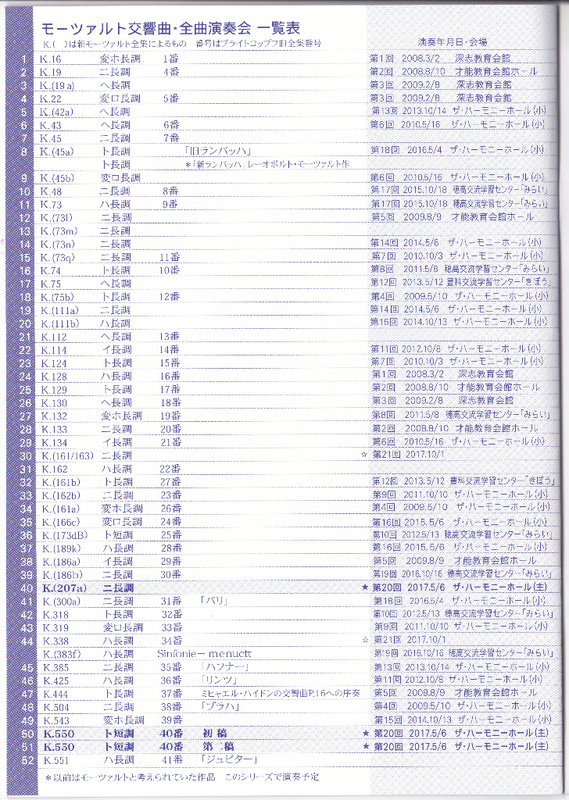 モーツァルト交響曲・全曲演奏会 一覧表
K.( )は新モーツァルト全集によるもの 番号はブライトコップフ旧全集番号 演奏年月日・会場
1 K.16 変ホ長調 1番 第1回 2008.3/2 深志教育会館
2 K.19 ニ長調 4番 第2回 2008.8/10 才能教育会館ホール
3 K.(19a) ヘ長調 第3回 2009.2/8 深志教育会館
4 K.22 変ロ長調 5番 第3回 2009.2/8 深志教育会館
5 K.(42a) ヘ長調 第13回 2013.10/14 ザ・ハーモニーホール(小)
6 K.43 ヘ長調 6番 第6回 2010.5/16 ザ・ハーモニーホール(小)
7 K.45 ニ長調 7番
8 K.(45a) ト長調 「旧ランバッハ」 第18回 2016.5/4 ザ・ハーモニーホール(小)
ト長調 *「新ランバッハ レーオポルト・モーツァルト作
9 K.(45b) 変ロ長調 第6回 2010.5/16 ザ・ハーモニーホール(小)
10 K.48 ニ長調 8番 第17回 2015.10/18 穂高交流学習センター「みらい」
11 K.73 ハ長調 9番 第17回 2015.10/18 穂高交流学習センター「みらい」
12 K.(73l) ニ長調 第5回 2009.8/9 才能教育会館ホール
13 K.(73m) ニ長調
14 K.(73n) ニ長調 第14回 2014.5/6 ザ・ハーモニーホール(小)
15 K.(73q) ニ長調 11番 第7回 2010.10/3 ザ・ハーモニーホール(小)
16 K.74 ト長調 10番 第8回 2011.5/8 穂高交流学習センター「みらい」
17 K.75 ヘ長調 第12回 2013.5/12 豊科交流学習センター「きぼう」
18 K.(75b) ト長調 12番 第4回 2009.5/10 ザ・ハーモニーホール(小)
19 K.(111a) ニ長調 第14回 2014.5/6 ザ・ハーモニーホール(小)
20 K.(111b) ハ長調 第15回 2014.10/13 ザ・ハーモニーホール(小)
21 K.112 ヘ長調 13番
22 K.114 イ長調 14番 第11回 2012.10/8 ザ・ハーモニーホール(小)
23 K.124 ト長調 15番 第7回 2010.10/3 ザ・ハーモニーホール(小)
24 K.128 ハ長調 16番 第1回 2008.3/2 深志教育会館
25 K.129 ト長調 17番 第2回 2008.8/10 才能教育会館ホール
26 K.130 ヘ長調 18番 第3回 2009.2/8 深志教育会館
27 K.132 変ホ長調 19番 第8回 2011.5/8 穂高交流学習センター「みらい」
28 K.133 ニ長調 20番 第2回 2008.8/10 才能教育会館ホール
29 K.134 イ長調 21番 第6回 2010.5/16 ザ・ハーモニーホール(小)
30 K.(161/163) ニ長調 ☆ 第21回 2017.10/1
31 K.162 ハ長調 22番
32 K.(161b) ト長調 27番 第12回 2013.5/12 豊科交流学習センター「きぼう」
33 K.(162b) ニ長調 23番 第9回 2011.10/10 ザ・ハーモニーホール(小)
34 K.(161a) 変ホ長調 26番 第4回 2009.5/10 ザ・ハーモニーホール(小)
35 K.(166c) 変ロ長調 24番 第16回 2015.5/6 ザ・ハーモニーホール(小)
36 K.(173dB) ト短調 25番 第10回 2012.5/13 穂高交流学習センター「みらい」
37 K.(189k) ハ長調 28番 第16回 2015.5/6 ザ・ハーモニーホール(小)
38 K.(186a) イ長調 29番 第5回 2009.8/9 才能教育会館ホール
39 K.(186b) ニ長調 30番 第19回 2016.10/16 穂高交流学習センター「みらい」
40 K.(207a) ニ長調 ★ 第20回 2017.5/6 ザ・ハーモニーホール(主)
41 K.(300a) ニ長調 31番 「パリ」 第18回 2016.5/4 ザ・ハーモニーホール(小)
42 K.318 ト長調 32番 第10回 2012.5/13 穂高交流学習センター「みらい」
43 K.319 変ロ長調 33番 第9回 2011.10/10 ザ・ハーモニーホール(小)
44 K.338 ハ長調 34番 ☆ 第21回 2017.10/1
K.(383f) ハ長調 Sinfonie-menuett 第19回 2016.10/16 穂高交流学習センター「みらい」
45 K.385 ニ長調 35番 「ハフナー」 第13回 2013.10/14 ザ・ハーモニーホール(小)
46 K.425 ハ長調 36番 「リンツ」 第11回 2012.10/8 ザ・ハーモニーホール(小)
47 K.444 ト長調 37番 ミヒャエル・ハイドンの交響曲P.16への序奏 第5回 2009.8/9 才能教育会館ホール
48 K.504 ニ長調 38番 「プラハ」 第4回 2009.5/10 ザ・ハーモニーホール(小)
49 K.543 変ホ長調 39番 第15回 2014.10/13 ザ・ハーモニーホール(小)
50 K.550 ト短調 40番 初稿 ★ 第20回 2017.5/6 ザ・ハーモニーホール(主)
51 K.550 ト短調 40番 第二稿 ★ 第20回 2017.5/6 ザ・ハーモニーホール(主)
52 K.551 ハ長調 41番 「ジュピター」
*以前はモーツァルトと考えられていた作品 このシリーズで演奏予定